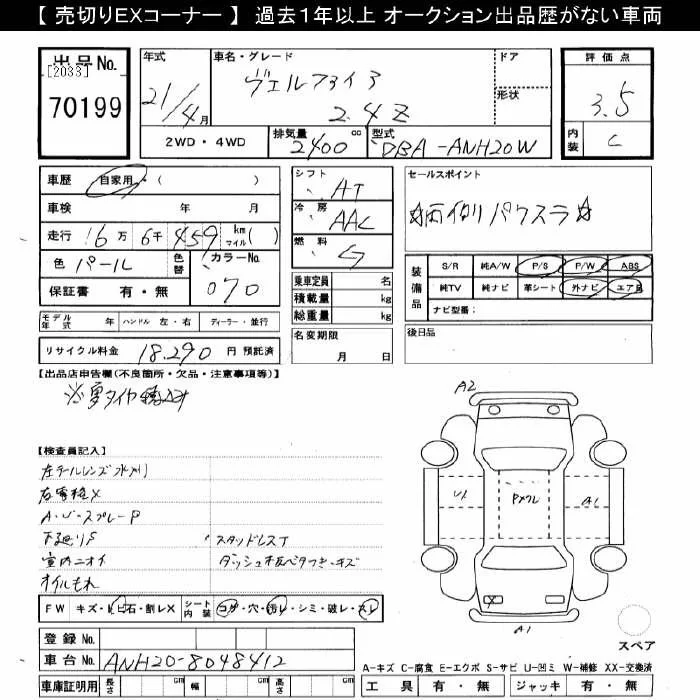 【 売切りEXコーナー 】 過去1年以上 オークション出品歴がない車両
出品No.
[2033]
70199
年式
21/4月
車名・グレード
ヴェルファイア
2.4Z
ドア
形状
評価点
3.5
内装
C
2WD・4WD
排気量
2400 cc
型式
DBA-ANH20W
車歴 自家用・( )
車検 年 月
走行 16万 6千 459 km マイル( )
色 パール
色替
カラーNo.
070
保証書 有・無
シフト
AT
冷房
AAC
燃料
G
乗車定員 名
積載量 kg
総重量 kg
セールスポイント
☆両側パワスラ☆
装備品
S/R 純A/W P/S P/W ABS
純TV 純ナビ 革シート 外ナビ エアB
ナビ型番:
モデル年式 年 ハンドル 左・右 ディーラー・並行
名変期限
月 日
後日品
リサイクル料金 18,290 円 預託済
【出品店申告欄(不良箇所・欠品・注意事項等)】
※夏タイヤ積込み
【検査員記入】
左テールレンズ水入り
A・U・スプレーP
下廻りS スタッドレスT
室内ニオイ ダッシュ板ベタつき・キズ
オイルもれ
FW キズ・ヒビ石・割レX
シート内装 コゲ・穴・汚レ・シミ・破レ・スレ
登録No.
車台No. ANH20-8048412
車庫証明用 長さ cm 幅 cm 高さ cm
A2
U1
PXワレ
A1
X
A1
スペア
A-キズ C-腐食 E-エクボ S-サビ U-凹ミ W-補修 XX-交換済
工具 有・無 ジャッキ 有・無